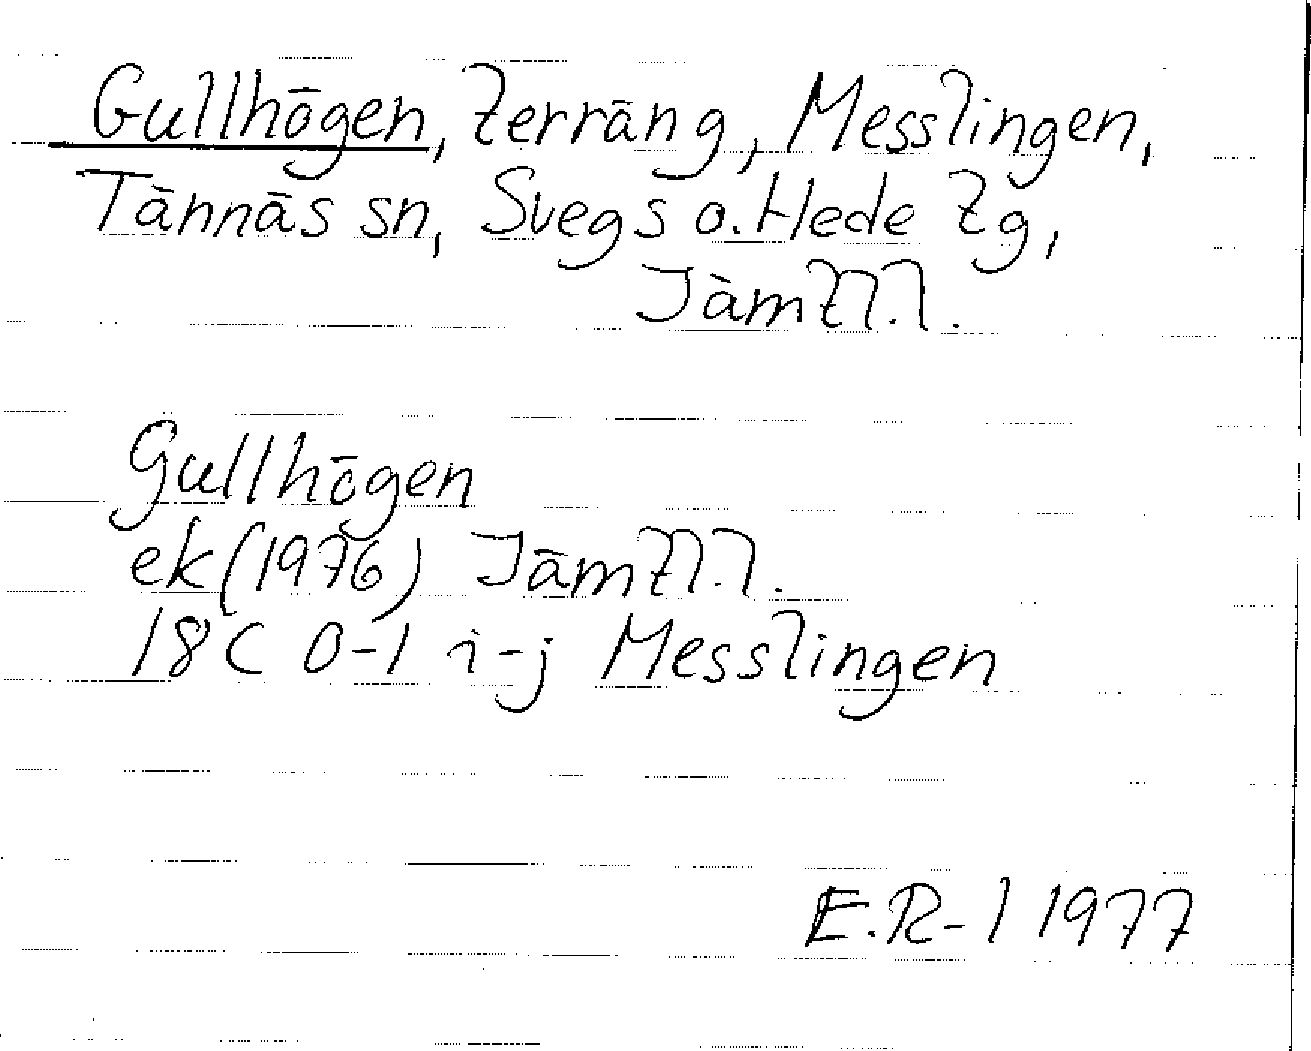 Gullhögen, terräng, Messlingen,
Tännäs sn, Svegs o. Hede tg,
Jämtl. l.
Gullhögen
ek (1976) Jämtl. l.
18C 0-1 i-j Messlingen
E.R-l 1977